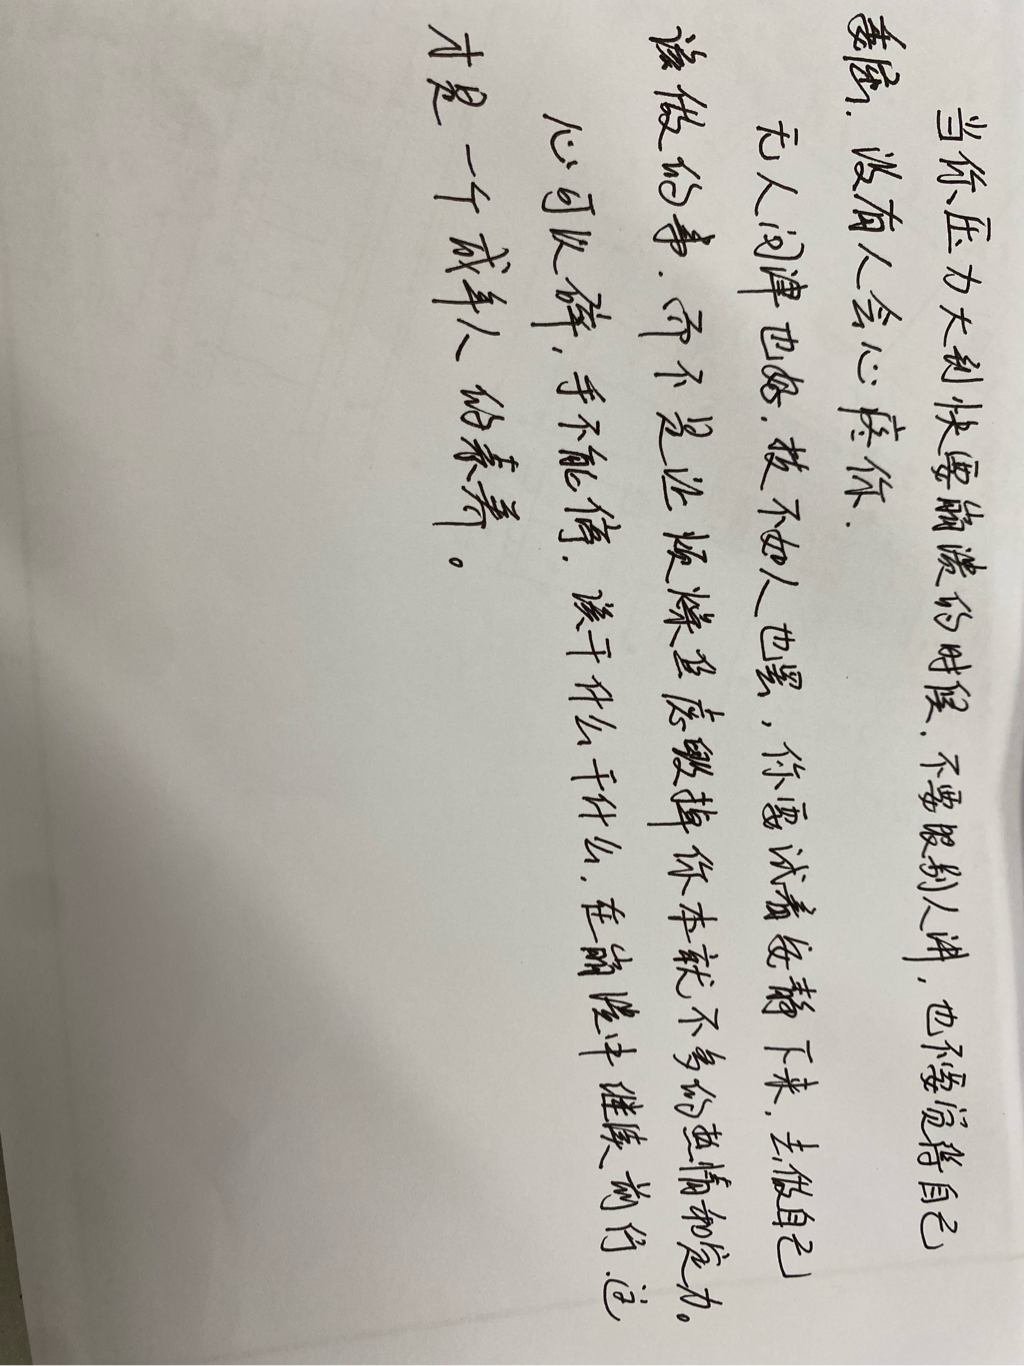 当你压力大到快要崩溃的时候.不要跟别人讲,也不要觉得自己
委屈.没有人会心疼你.
无人问津也好.技不如人也罢,你要试着安静下来.去做自己
该做的事.而不是让烦燥焦虑毁掉你本就不多的热情和定力。
心可以碎,手不能停.该干什么干什么.在崩溃中继续前行.这
才是一个成年人的素养。